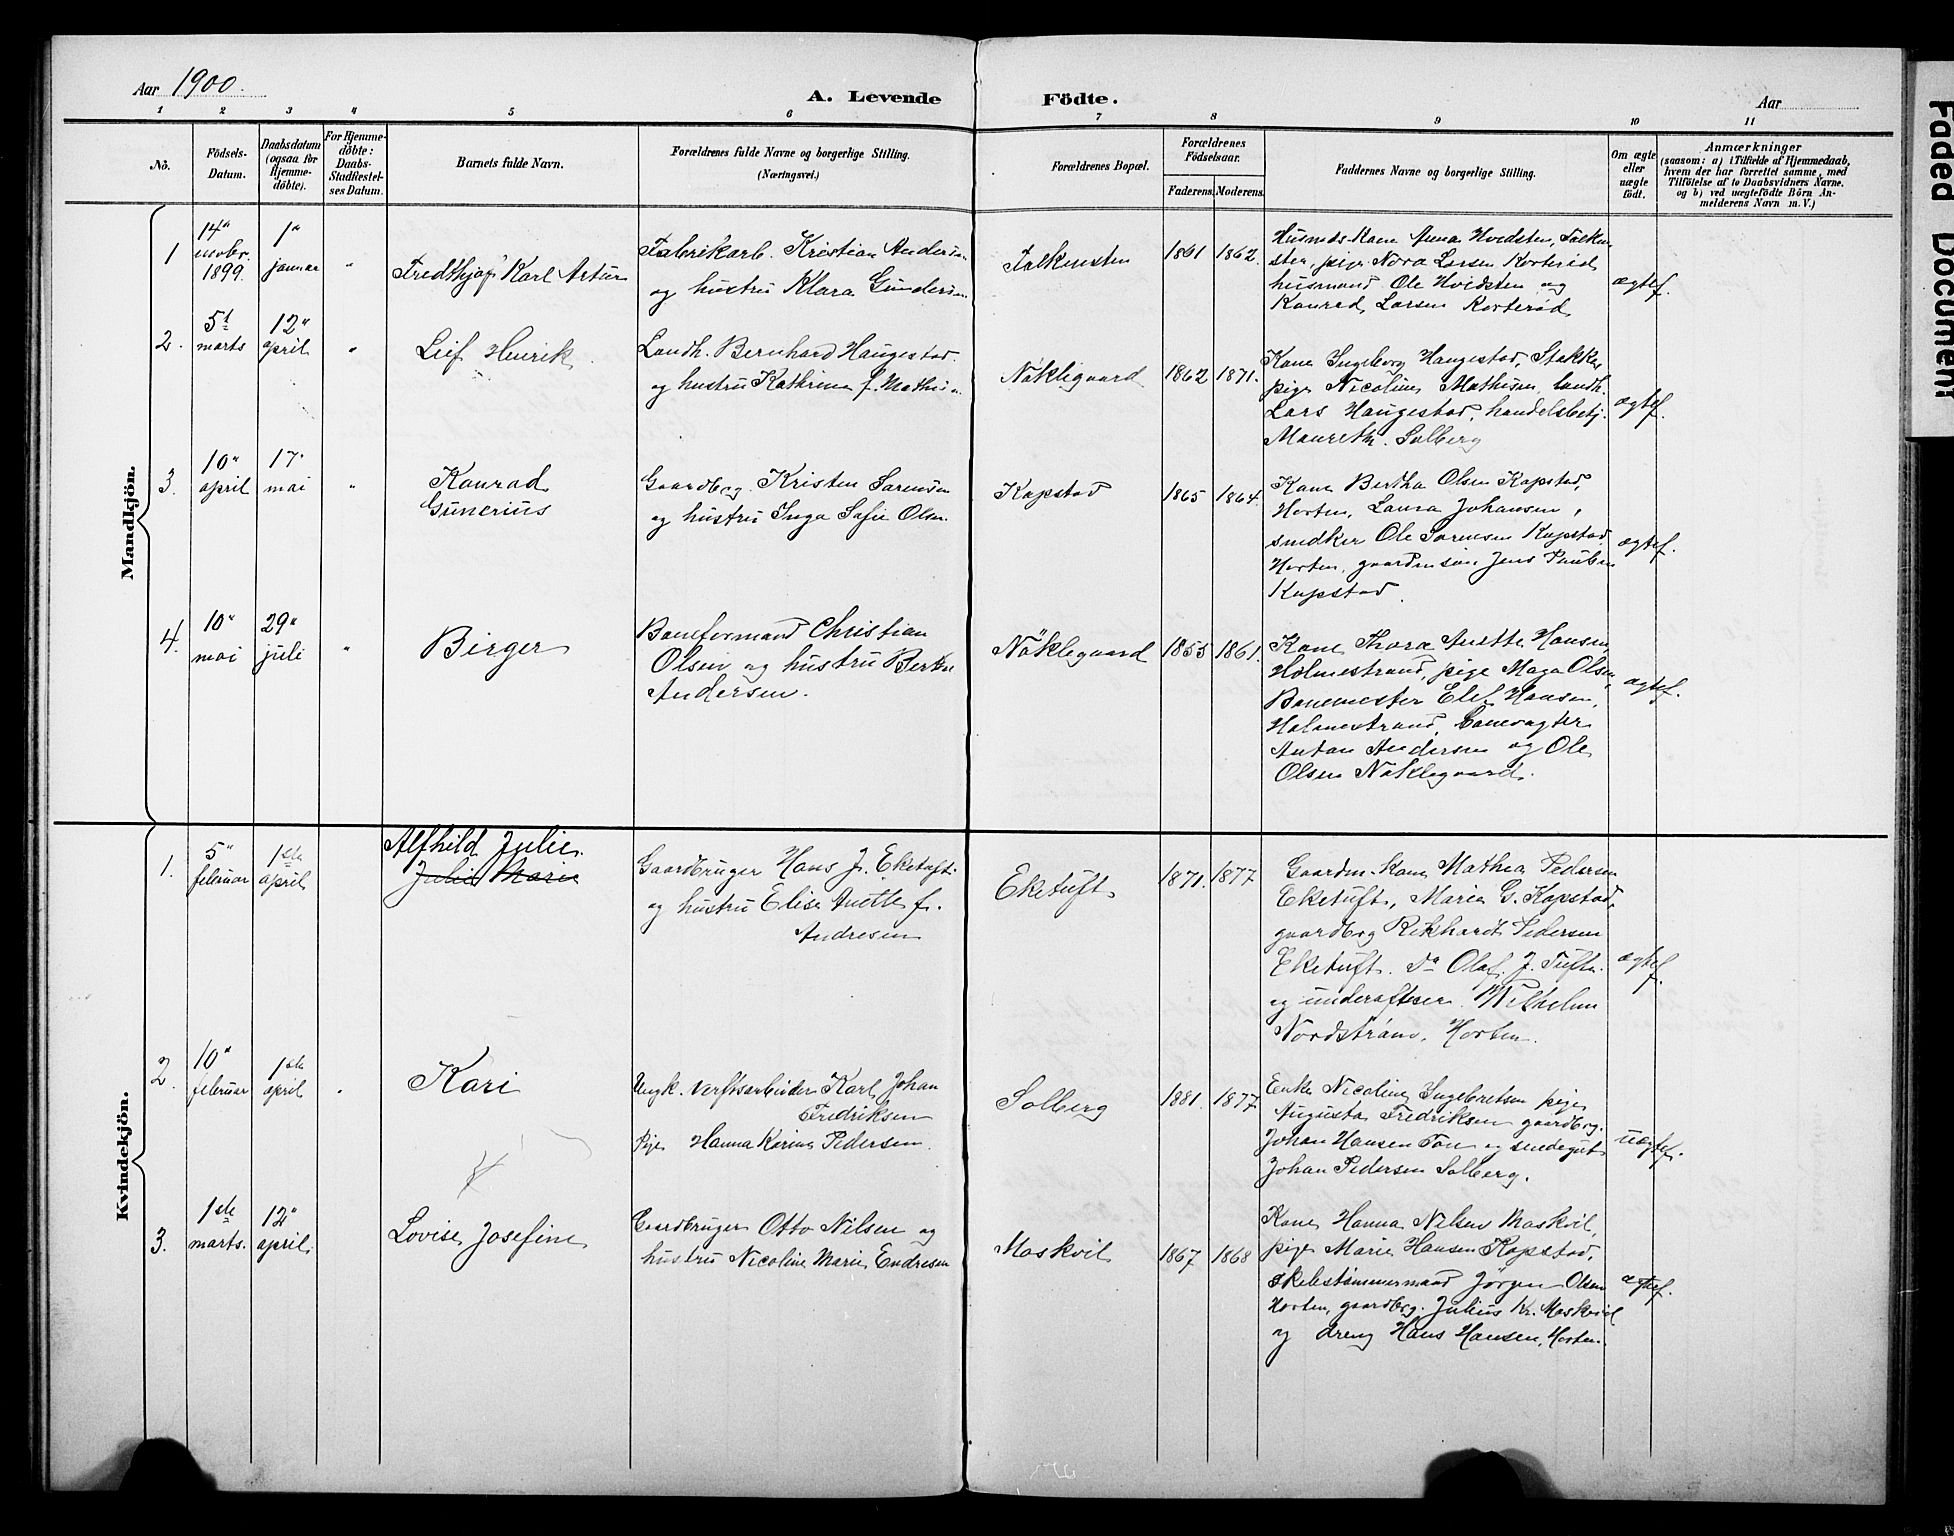 Aar 1900.
A. Levende Födte.
Aar
1 2 3 4 5 6 7 8 9 10 11
No.
Födsels-
Datum.
Daabsdatum
(ogsaa for
Hjemme-
döbte).
For Hjemme-
döbte:
Daabs-
Stadfæstel-
ses Datum.
Barnets fulde Navn.
Forældrenes fulde Navne og borgerlige Stilling.
(Næringsvei.)
Forældrenes Bopæl.
Forældrenes
Födselsaar.
Faderens. Moderens.
Faddernes Navne og borgerlige Stilling.
Om ægte
eller
uægte
födt.
Anmærkninger
(saasom: a) i Tilfælde af Hjemmedaab,
hvem der har forrettet samme, med
Tilföielse af to Daabsvidners Navne.
og b) ved uægtefödte Börn An-
melderens Navn m. V.)
Mandkjön.
1
14"
novbr.
1899.
1"
januar
"
Fredthjof Karl Artur
Fabrikarb. Kristian Andersen
og hustru Klara Gundersen
Falkensten
1861 1862.
Husmds. Kone Anna Hvidsten, Falken
sten, pige Nora Larsen Korterød
husmand Ole Hvidsten og
Konrad Larsen Korterød
ægtef.
2.
5t
marts
12"
april
"
Leif Henrik
Landh. Bernhard Haugestad
og hustru Kathrina f. Mathisen
Nøklegaard
1862 1871.
Kone Ingeborg Haugestad, Stokke,
pige Nicoline Mathisen, landh.
Lars Haugestad, handelsbetj.
Mauritz Solberg
ægtef.
3.
10"
april
17"
mai
"
Konrad
Gunerius
Gaardbrg. Kristen Sørensen
og hustru Inga Sofie Olsen.
Kopstad
1865 1864.
Kone Bertha Olsen Kopstad,
Horten, Laura Johansen,
snedker Ole Sørensen Kopstad
Horten, gaardmsøn Jens Paulsen
Kopstad.
ægtef.
4.
10"
mai
29"
juli
"
Birger
Baneformand Christian
Olsen og hustru Berthe
Andersen.
Nöklegaard
1855 1861.
Kone Thora Anette Hansen
Holmestrand, pige Maga Olsen,
Banemester Elef Hansen,
Holmestrand, banevogter
Anton Andersen og Ole
Olsen Nøklegaard.
ægtef.
Kvindekjön.
1.
5"
februar
1ste
april
Alfhild Julie.
Julie Marie
Gaardbruger Hans J. Eketuft
og hustru Elise Anette f.
Andresen
Eketuft
1871. 1877
Gaardm. Kone Mathea Pedersen
Eketuft, Marie G. Kopstad,
gaardbrg Rikhardt Pedersen
Eketuft. Do Olaf J. Tuften
og underofficer Wilhelm
Nordstrøm, Horten.
ægtef.
2.
10"
februar
1ste
april
"
Kari
Ungk. verftsarbeider Karl Johan
Fredriksen
Pige Hanna Karine Pedersen.
Solberg
1881. 1877
Enke Nicoline Ingebretsen pige
Augusta Fredriksen gaardbrg.
Johan Hansen Ton og
Johan Pedersen Solberg.
uægtef.
3.
1ste
marts.
12"
april.
Lovise Josefine
Gaardbruger Otto Nilsen og
hustru Nicoline Marie Endresen
Moskvil
1867 1868
Kone Hanna Nilsen Moskvil,
pige Marie Hansen Kopstad,
skibstømmermand Jörgen Olsen
Horten, gaardbrg. Julius Kr. Moskvil
og dreng Hans Hansen, Horten.
ægtef.
Faded Document